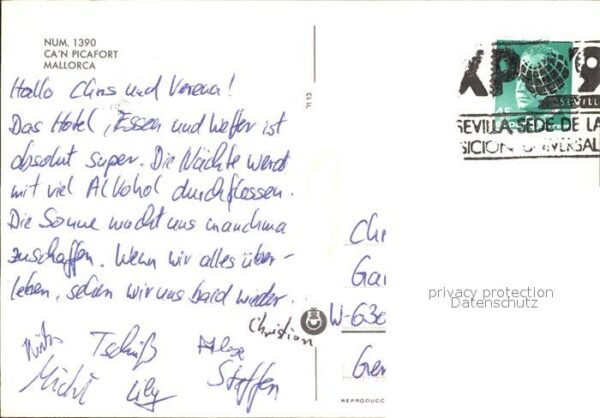 NUM. 1390
CA'N PICAFORT
MALLORCA
Hallo Chris und Verena!
Das Hotel, Essen und Wetter ist
absolut super. Die Nächte werd
mit viel Alkohol durchflossen.
Die Sonne macht uns manchma
zuschaffen. Wenn wir alles über-
leben, sehen wir uns bald wieder.
Christian
Tschüß
Michi Lily Steffen
XPO '9
SEVILL
SEVILLA SEDE DE LA
SICION UNIVERSAL
Ch
Ga
W-630
Ger
privacy protection
Datenschutz
REPRODUCC